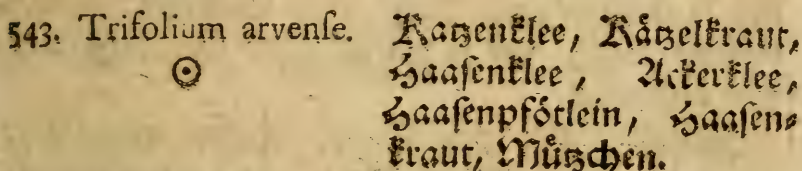 543. Trifolium arvenſe. Katzenklee, Kåtzelkraut,
☉ Haaſenklee, Ackerklee,
Haaſenpfötlein, Haaſen⸗
kraut, Můtzchen.